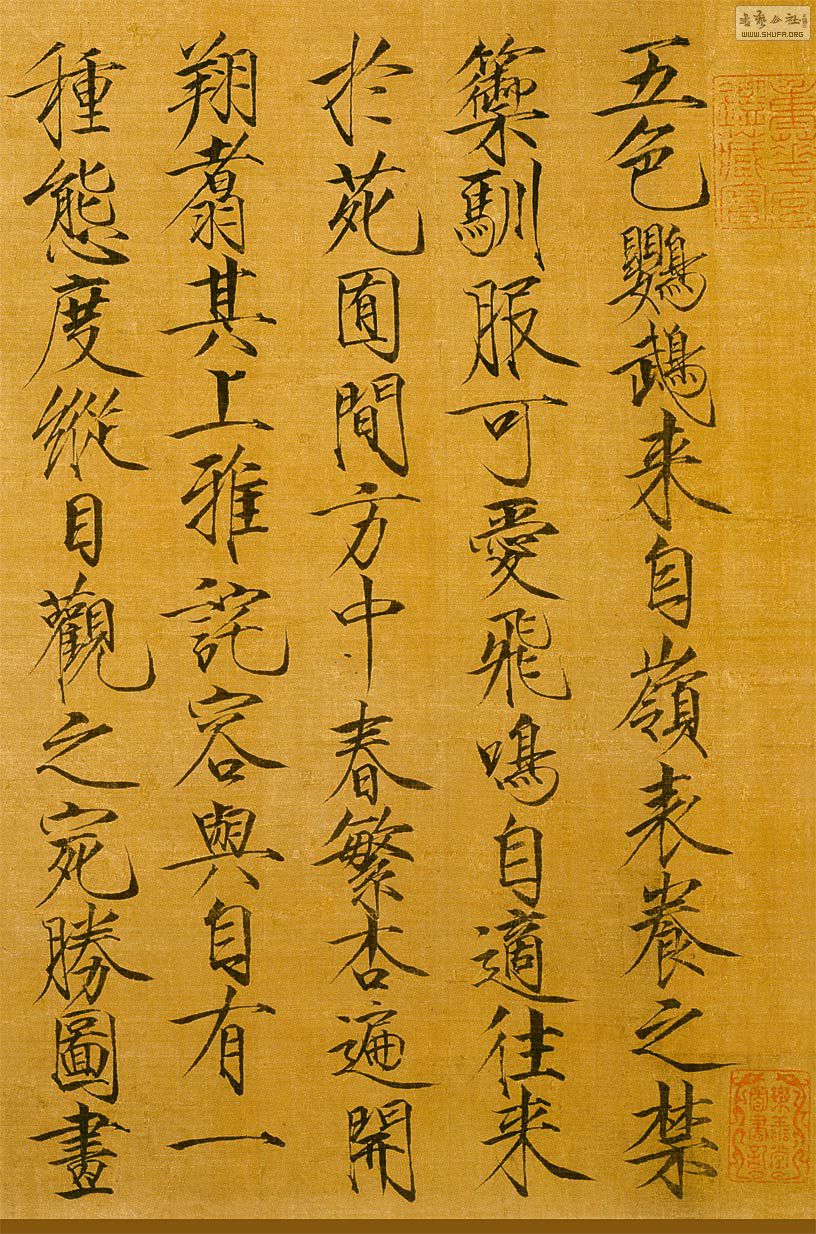 五色鸚鵡来自嶺表養之禁
籞馴服可愛飛鳴自適往来
於苑囿間方中春繁杏遍開
翔翥其上雅詫容與自有一
種態度縱目觀之宛勝圖畫
書藝公社
WWW.SHUFA.ORG